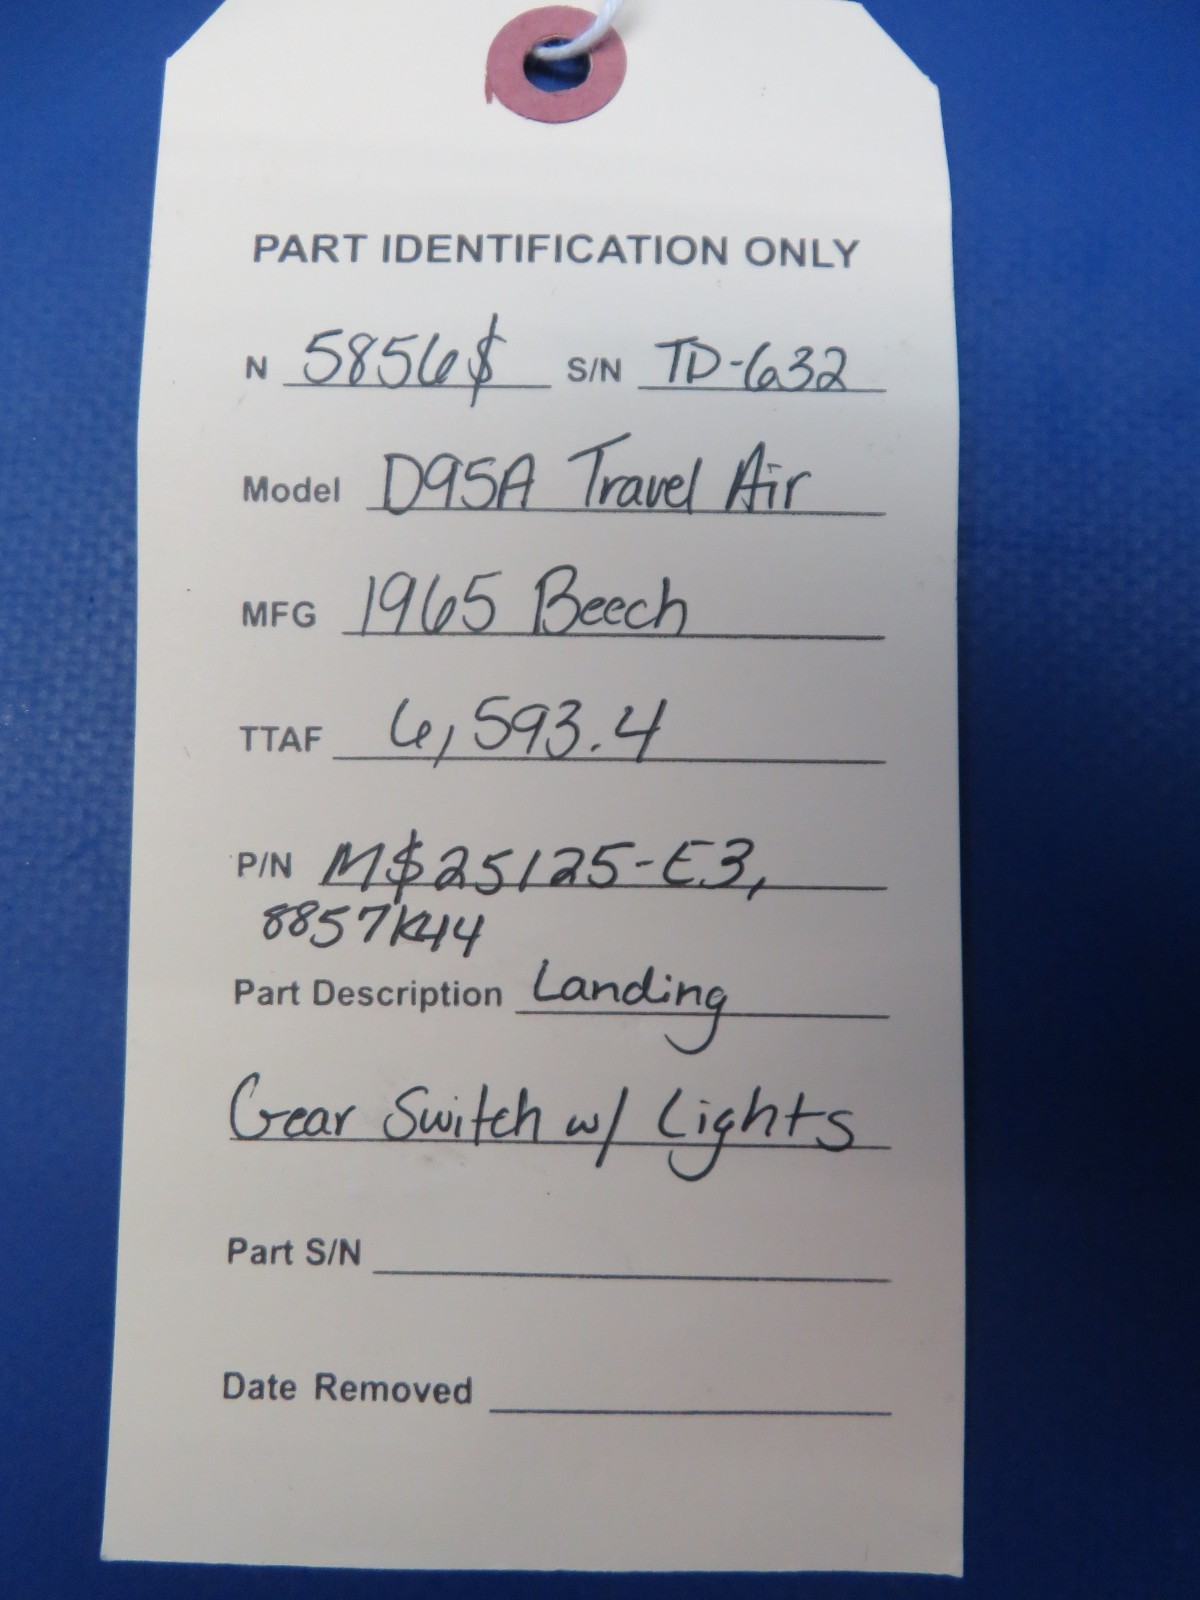 PART IDENTIFICATION ONLY
N 5856$ S/N TD-632
Model D95A Travel Air
MFG 1965 Beech
TTAF 6,593.4
P/N M$25125-E3,
8857K44
Part Description Landing
Gear Switch w/ Lights
Part S/N
Date Removed